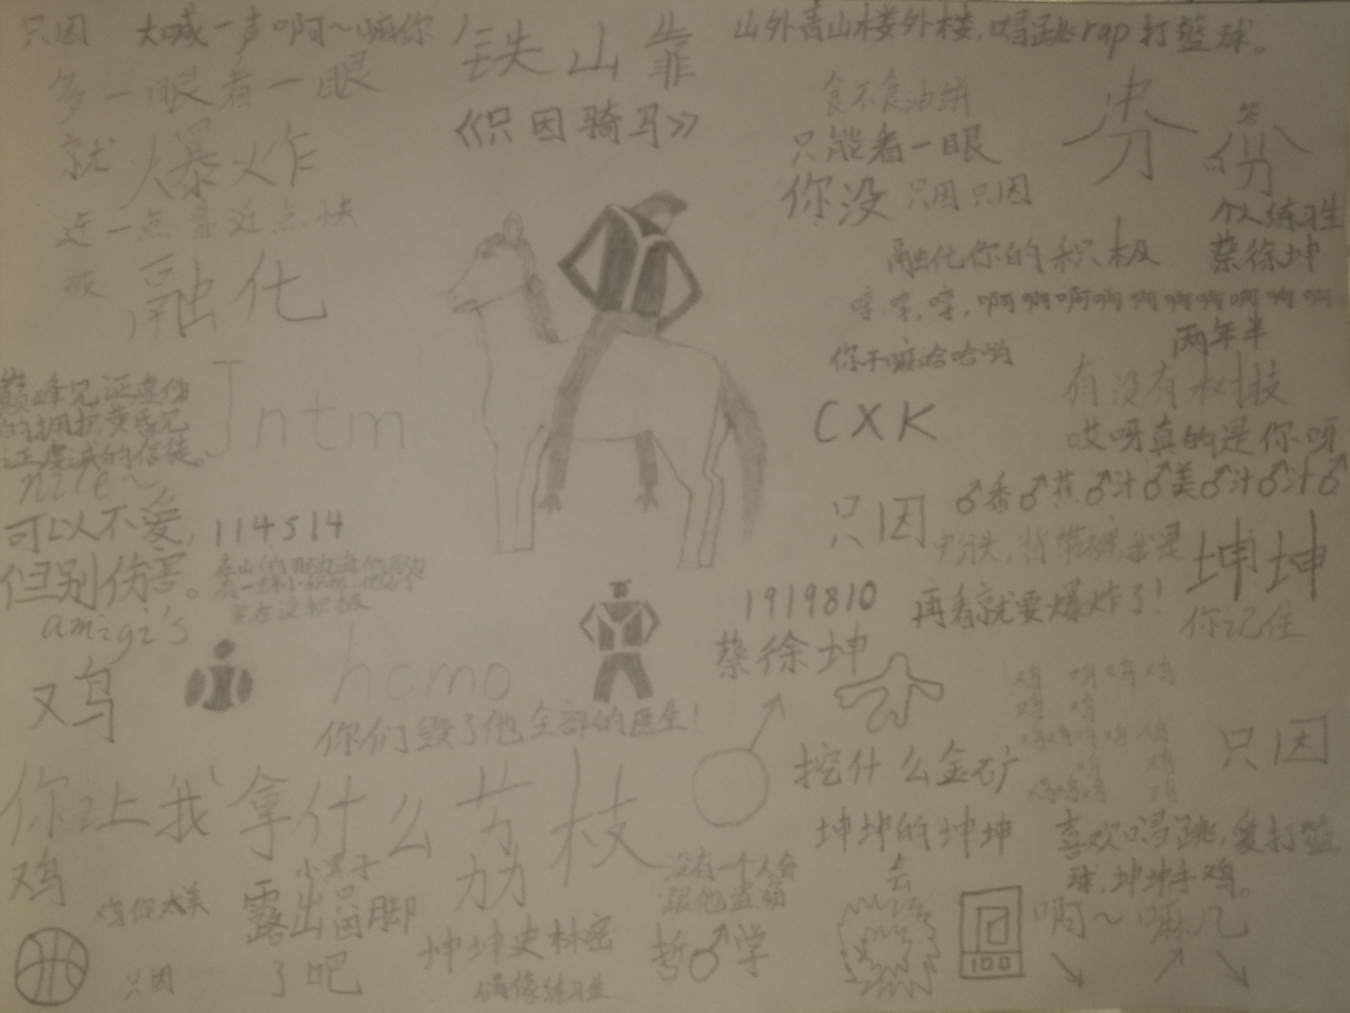 只因 大喊一声啊～嘛你
多一眼看一眼
就爆炸
近一点靠近点快
被融化
铁山靠
《只因骑马》
山外青山楼外楼,唱跳rap打篮球。
食不食油饼
只能看一眼
你没 只因只因
个人练习生
蔡徐坤
融化你的积极
啊啊啊啊啊啊啊啊啊啊
两年半
你干嘛哈哈哟
有没有树枝
哎呀真的是你呀
CXK
Jntm
巅峰见证虚伪
的拥护黄昏见
证虔诚的信徒。
可以不爱,
但别伤害。
114514
♂香♂蕉♂汁♂美♂汁♂汁♂
只因
坤坤
再看就要爆炸了!
你记住
1919810
蔡徐坤
鸡
homo
你们毁了他全部的医生!
挖什么金矿
鸡 鸡鸡鸡
只因
你让我拿什么
枝
坤坤的坤坤
喜欢唱跳,爱打篮
球,坤坤手鸡。
鸡
鸡你太美
小黑子
露出只因脚
了吧
没有一个人会
跟他
坤坤史林密
偶像练习生
哲♂学
去
100
啊～嘛几
只因